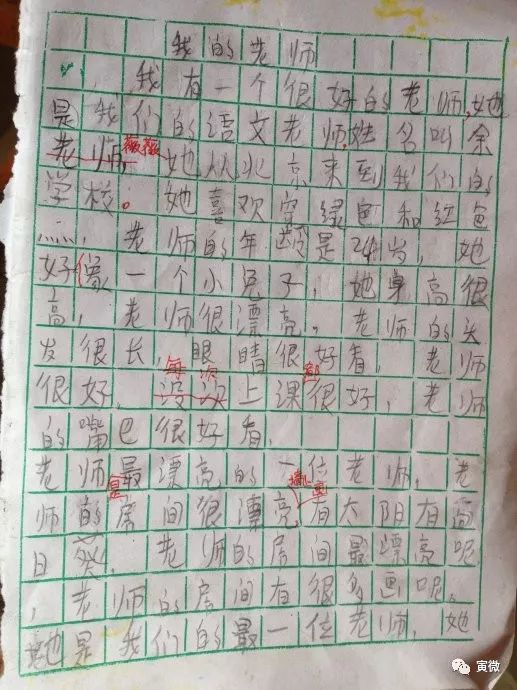 我的老师
我有一个很好的老师,她
是我们的语文老师,姓名叫余
老师薇薇她从北京来到我们的
学校。她喜欢穿绿色和红色
老师的年龄是24岁,她
好像一个小兔子,她身高很
高,老师很漂亮,老师的头
发很长,眼睛很好看,老师
每次 都
很好,没次上课很好,老师
的嘴巴很好看,
老师最漂亮的一位老师,老
是 墙上画
师的房间很漂亮,有太阳有向
日葵,老师的房间最漂亮呢
,老师的房间有很多画呢。
她是我们的最一位老师,她
寅微